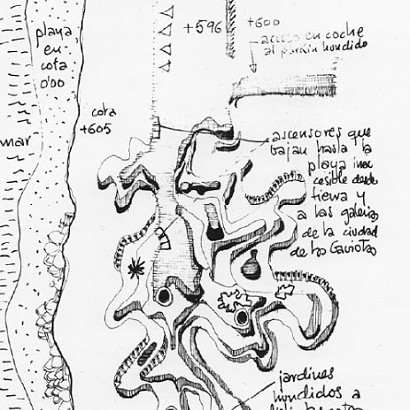 playa
en
cota
0'00
mar
cota
+605
+596
+600
acceso en coche
al parkin hundido
ascensores que
bajan hasta la
playa inac
cesible desde
tierra y
a las galerías
de la ciudad
de las Gaviotas
jardines
hundidos a